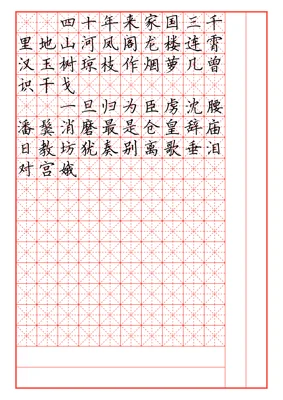 四十年来家国三千
里地山河凤阁龙楼连霄
汉玉树琼枝作烟萝几曾
识干戈
一旦归为臣虏沈腰
潘鬓消磨最是仓皇辞庙
日教坊犹奏别离歌垂泪
对宫娥